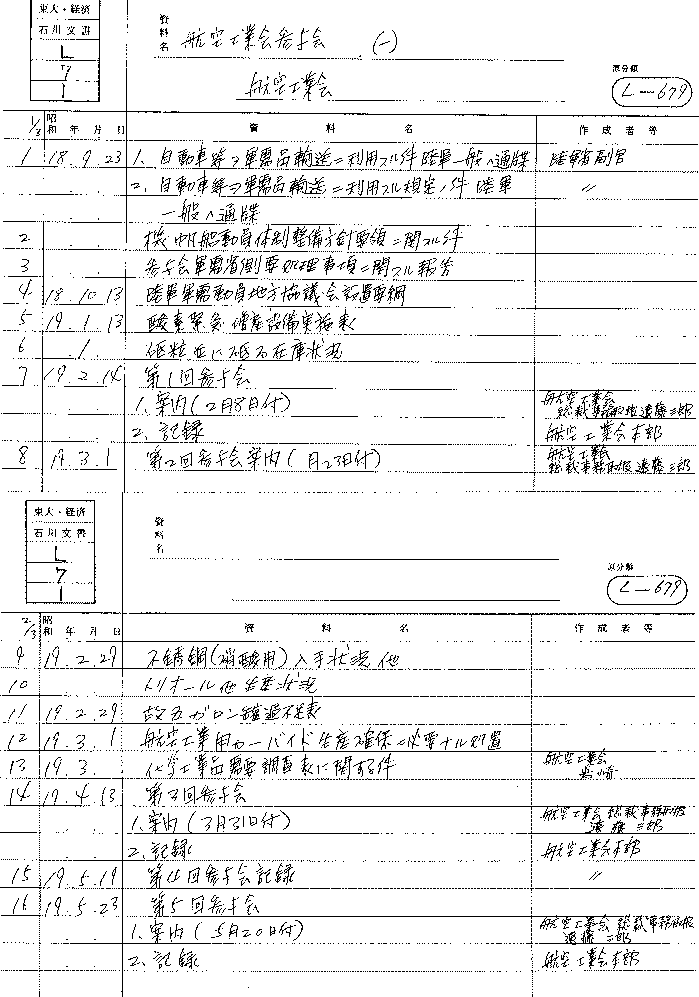 東大・経済
石川文書
L
7
1
資料名 航空工業会参与会 (一)
航空工業会
原分類
L—679
1/3 昭和 年 月 日 資料名 作成者等
1 18.9.23 1. 自動車等ヲ軍需品輸送ニ利用スル件 陸軍一般ヘ通牒 陸軍省副官
2. 自動車等ヲ軍需品輸送ニ利用スル規定ノ件 陸軍 〃
一般ヘ通牒
2 機帆船動員体制整備方針要領ニ関スル件
3 参与会軍需省側要処理事項ニ関スル報告
4 18.10.13 陸軍軍需動員地方協議会設置要綱
5 19.1.13 酸素緊急増産設備実施表
6 . 1 砥粒並に砥石在庫状況
7 19.2.14 第1回参与会
1. 案内(2月8日付) 航空工業会 総裁事務取扱 遠藤三郎
2. 記録 航空工業会本部
8 19.3.1 第2回参与会案内( 月23日付) 航空工業会 総裁事務取扱 遠藤三郎
東大・経済
石川文書
L
7
1
資料名
原分類
L—679
2/3 昭和 年 月 日 資料名 作成者等
9 19.2.29 不銹鋼(硝酸用)入手状況他
10 トリオール他生産状況
11 19.2.29 故五ガロン罐過不足表
12 19.3.1 航空工業用カーバイド生産確保ニ必要ナル処置
13 19.3. 化学工業品需要調査表に関する件 航空工業会
14 19.4.13 第3回参与会
1. 案内(3月31日付) 航空工業会 総裁事務取扱 遠藤三郎
2. 記録 航空工業会本部
15 19.5.19 第4回参与会記録 〃
16 19.5.23 第5回参与会
1. 案内(5月20日付) 航空工業会 総裁事務取扱 遠藤三郎
2. 記録 航空工業会本部